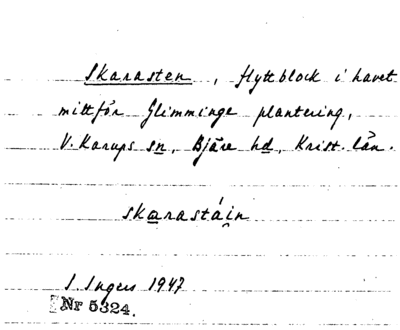 Skarasten, flyttblock i havet
mittför Glimminge plantering,
V. Karups sn, Bjäre hd, Krist. län.
skarastái̯n
I. Ingers 1947
Nr 5324.